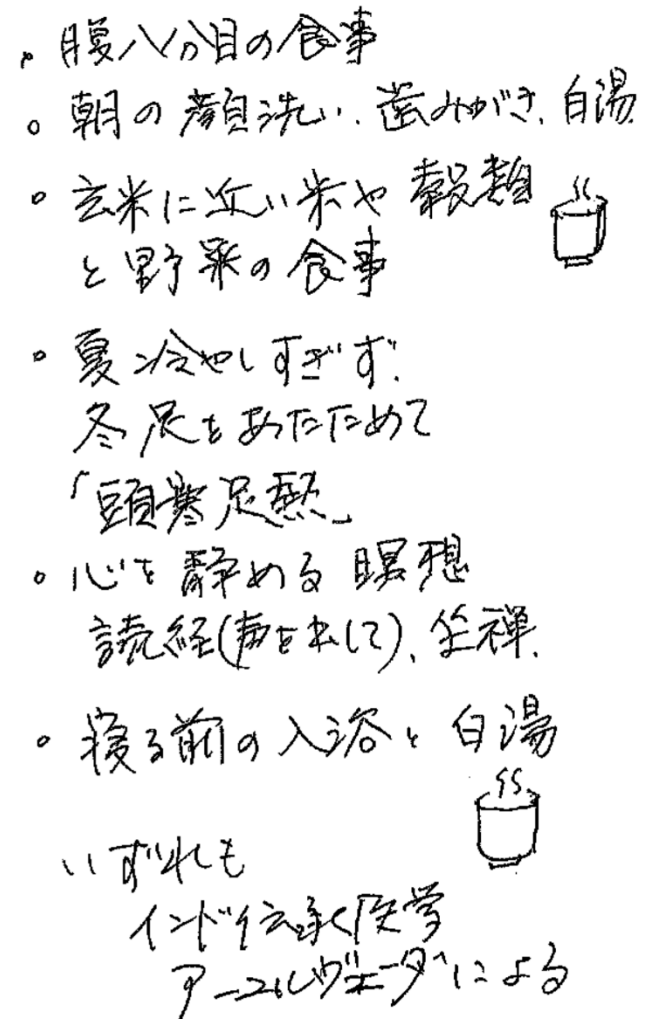 。腹八分目の食事
。朝の顔洗い、歯みがき、白湯
。玄米に近い米や穀類
と野菜の食事
。夏冷やしすぎず、
冬足をあたためて
「頭寒足熱」
。心を静める瞑想
読経(声を出して)、坐禅、
。寝る前の入浴と白湯
いずれも
インド伝承医学
アーユルヴェーダによる